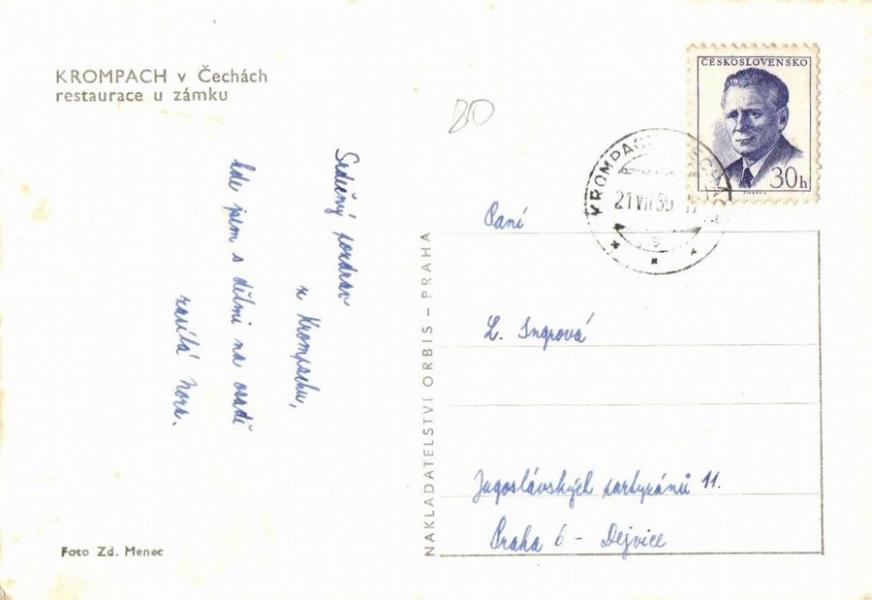 KROMPACH v Čechách
restaurace u zámku
Srdečný pozdrav
z Krompachu,
kde jsem s dětmi na osadě
zasílá Nora.
Foto Zd. Menec
NAKLADATELSTVÍ ORBIS – PRAHA
20
ČESKOSLOVENSKO
30h
KROMPACH
21 VII 59
Paní
L. Ingrová
Jugoslávských partyzánů 11.
Praha 6 – Dejvice